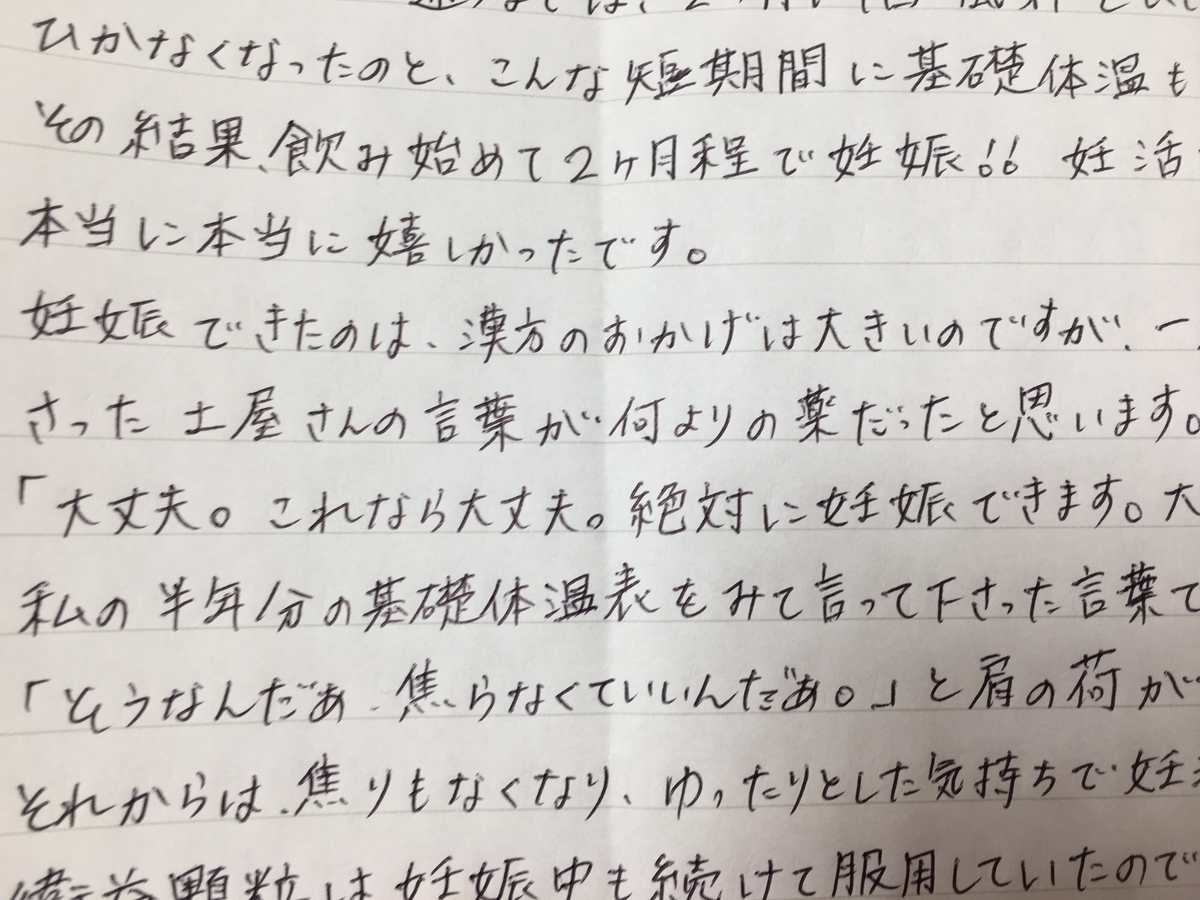 ひかなくなったのと、こんな短期間に基礎体温も
その結果、飲み始めて2ヶ月程で妊娠!! 妊活
本当に本当に嬉しかったです。
妊娠できたのは、漢方のおかげは大きいのですが、一
さった土屋さんの言葉が何よりの薬だったと思います。
「大丈夫。これなら大丈夫。絶対に妊娠できます。大
私の半年分の基礎体温表をみて言って下さった言葉で
「そうなんだぁ、焦らなくていいんだぁ。」と肩の荷が
それからは、焦りもなくなり、ゆったりとした気持ちで妊活
顆粒は妊娠中も続けて服用していたので